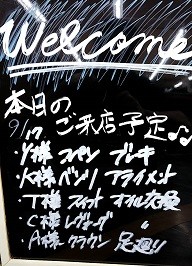 Welcome
本日の
9/17 ご来店予定♪
・Y様 スペシア ブレーキ
・K様 ベンツ アライメント
・T様 フィット オイル交換
・C様 レヴォーグ 〃
・A様 クラウン 足廻り